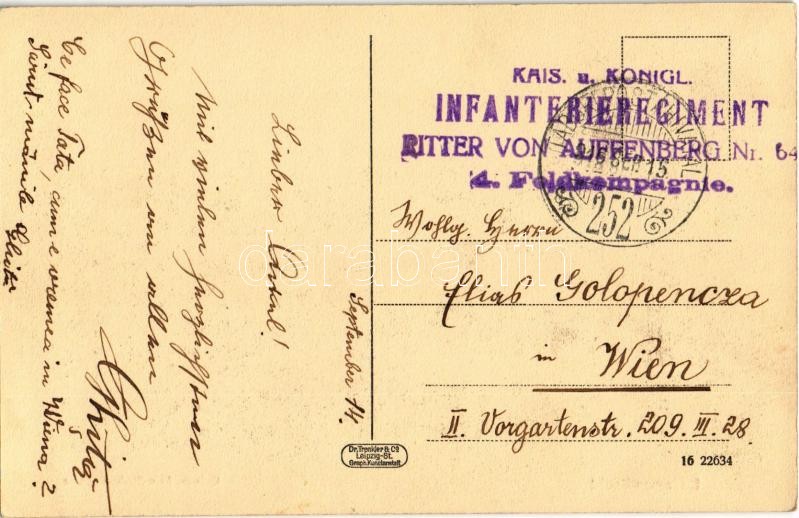 KAIS. u. KÖNIGL.
INFANTERIEREGIMENT
RITTER VON AUFFENBERG Nr. 64
4. Feldkompagnie.
TÁBORI POSTAHIVATAL
15
252
Wohlg. Herrn
Elias Golopencza
in
Wien
II. Vorgartenstr. 209. III. 28.
September 14.
Lieber Onkel!
Mit vielen herzlichsten
Grüßen an allen
Ce face Tata, cum e vremea in Wiena?
Sărut mânile
Dr. Trenkler & Co
Leipzig-St.
Graph. Kunstanstalt.
16 22634
darabanth